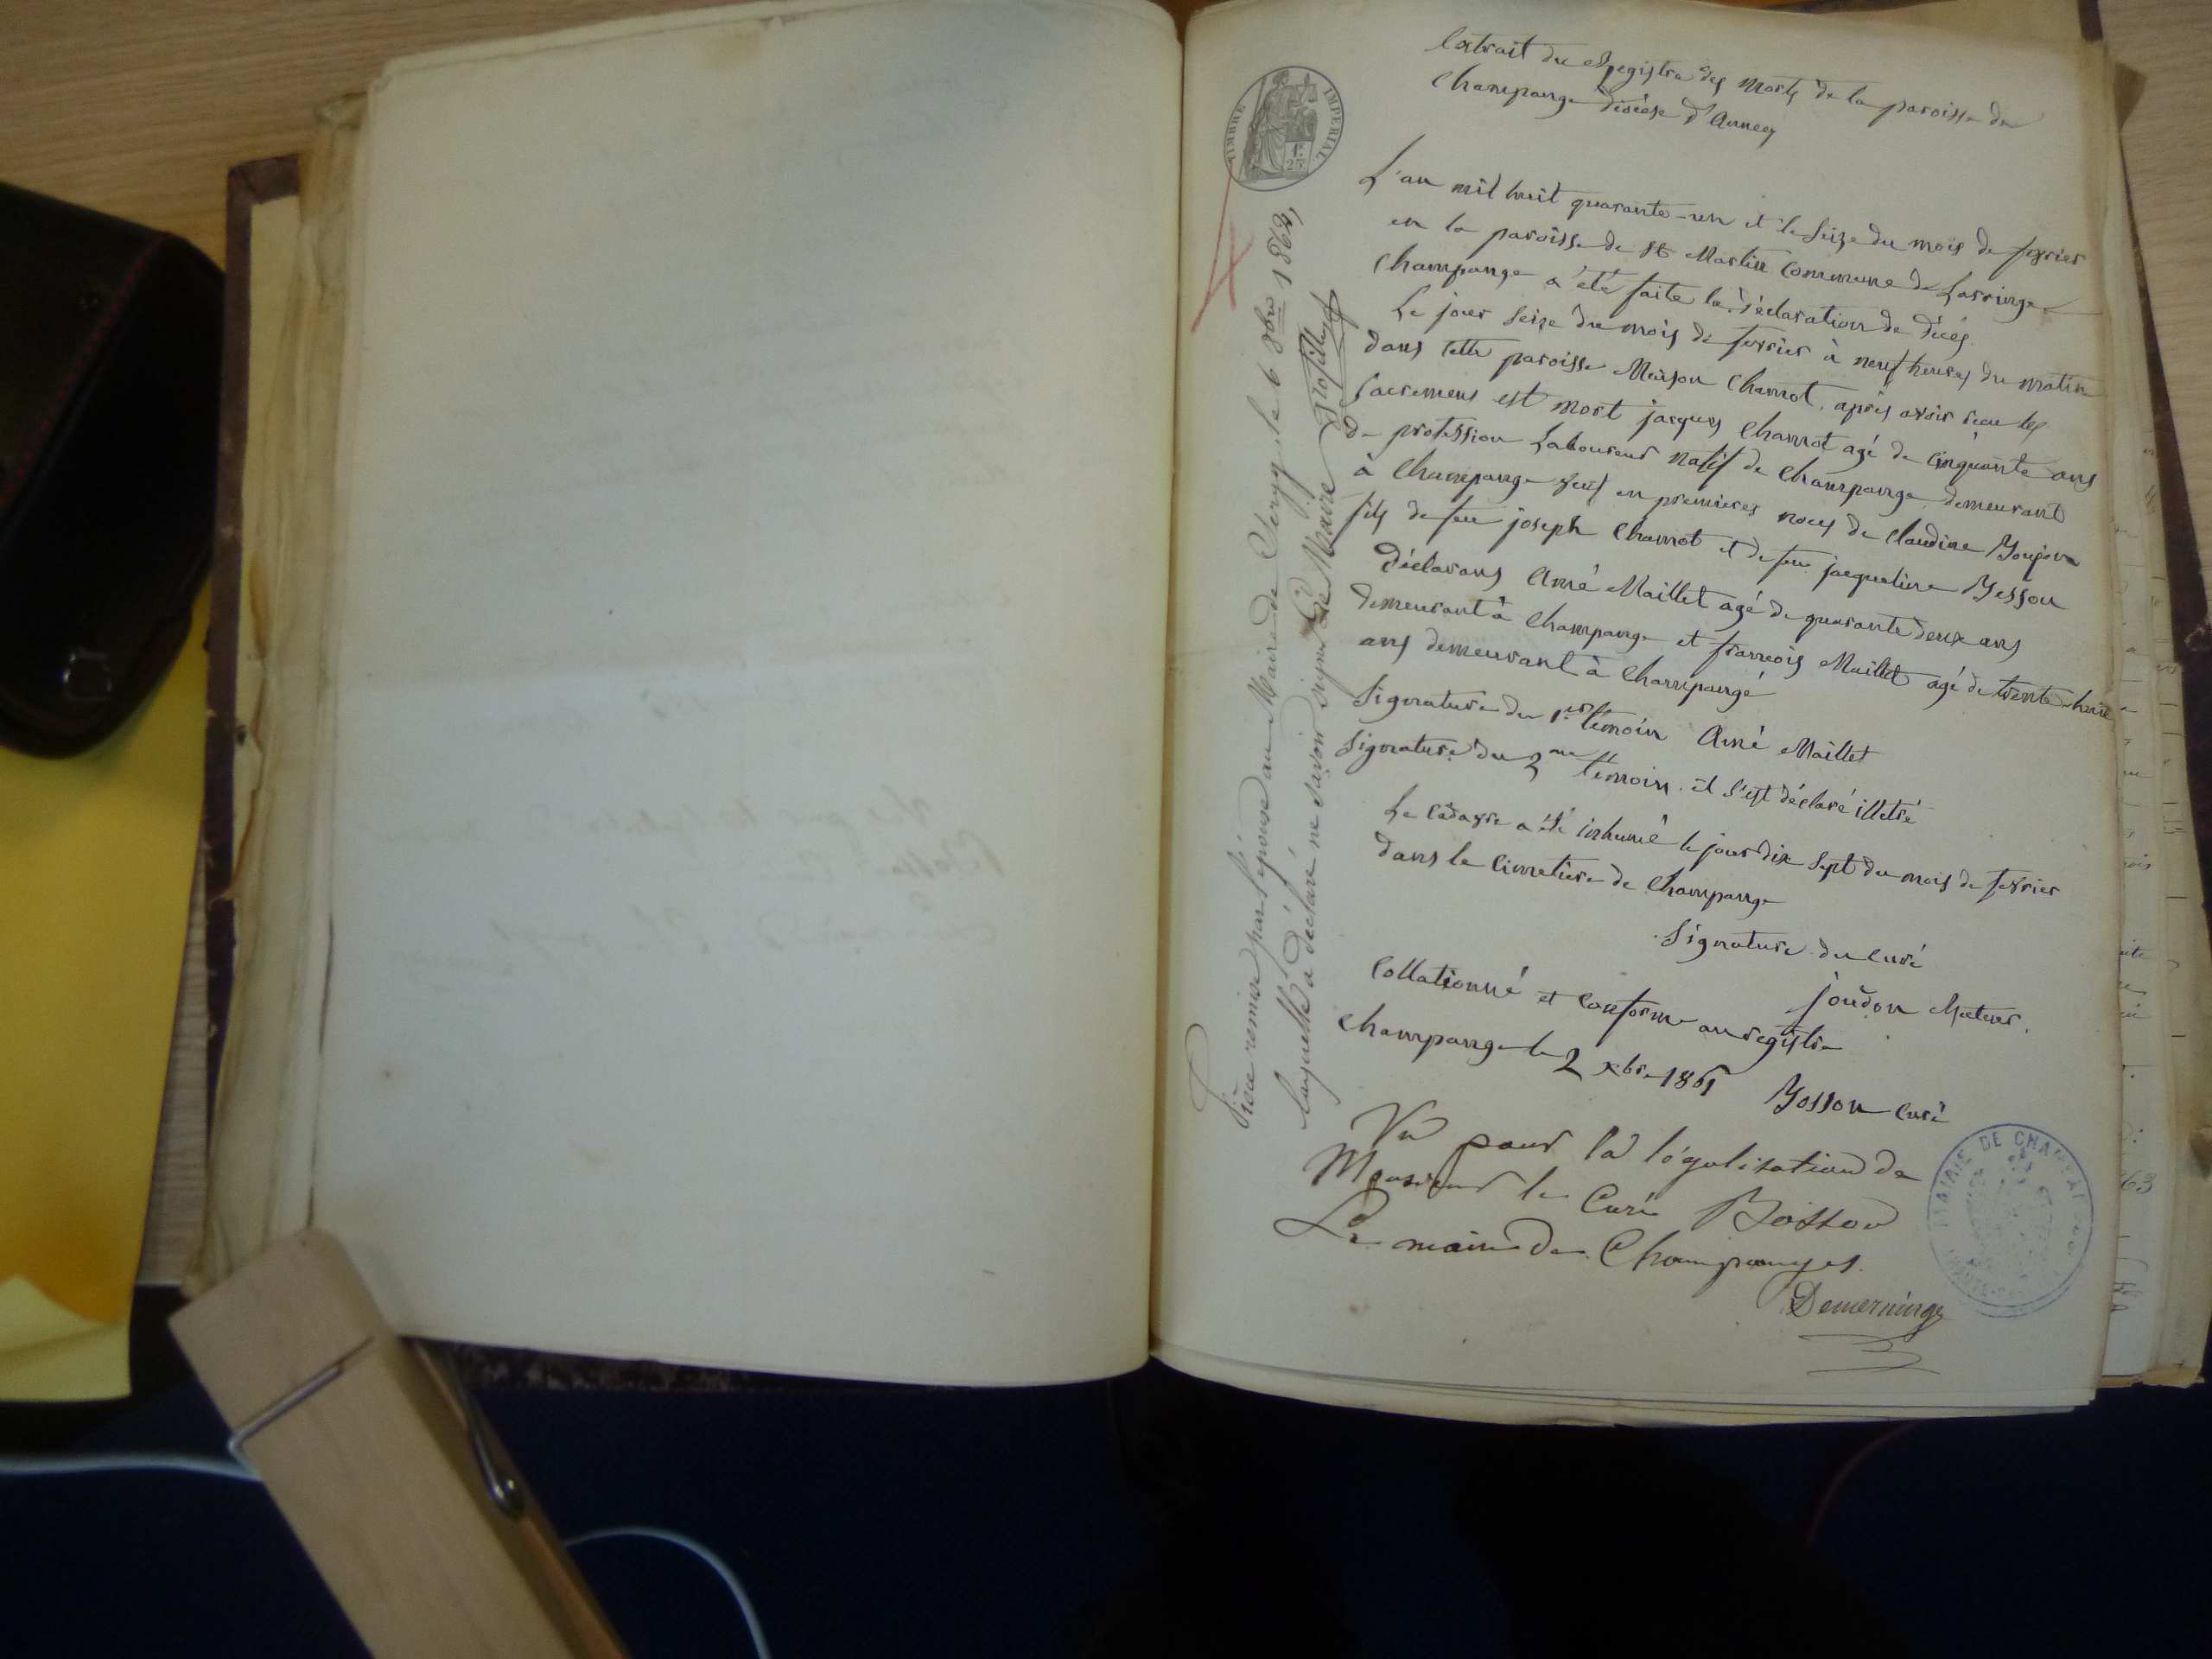 TIMBRE IMPERIAL
1F
25
Extrait du Registre des Morts de la paroisse de
Champange diocèse d'Annecy
L'an mil huit quarante-un et le seize du mois de fevrier
en la paroisse de St Martin Commune de Larringe
Champange a été faite la déclaration de décés.
Le jour seize du mois de fevrier à neuf heures du matin
dans cette paroisse Maison Charnot, après avoir recu les
sacremens est mort jacques Charnot agé de cinquante ans
de profession Laboureur natif de Champange demeurant
à Champange veuf en premieres noces de Claudine
fils de feu joseph Charnot et de feu jacqueline Besson
Déclarans Amé Maillet agé de quarante deux ans
demeurant à Champange et francois Maillet agé de trente-huit
ans demeurant à Champange
Signature du 1er témoin Amé Maillet
Signature du 2me témoin il s'est déclaré illetré
Le cadavre a été inhumé le jour dix sept du mois de fevrier
dans le cimetiere de Champange
Signature du curé
joudon Recteur.
Collationné et conforme au registre
Champange le 2 xbre 1861
Bosson curé
Vu pour la légalisation de
Monsieur le Curé Bosson
Le maire de Champanges.
MAIRIE DE CHAMPANGES
Pièce remise par l'épouse au Maire de Sergy, le 6 8bre 1862,
laquelle a déclaré ne savoir signer Le Maire